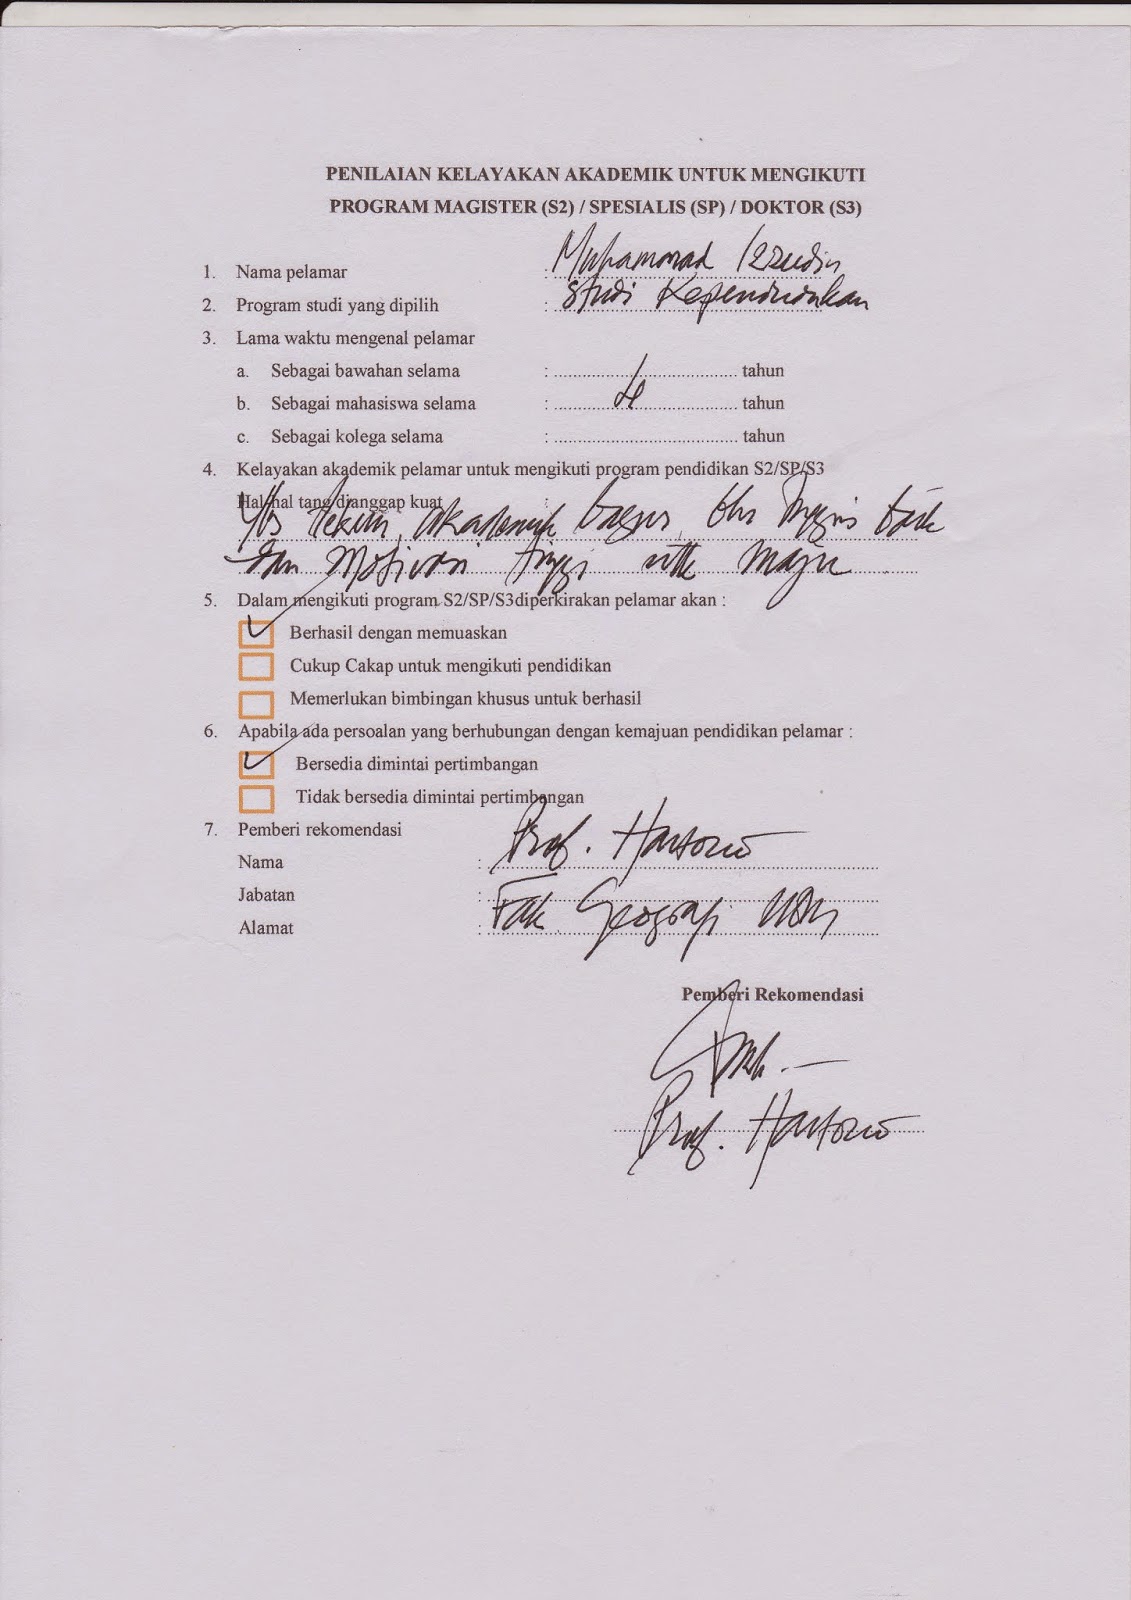 PENILAIAN KELAYAKAN AKADEMIK UNTUK MENGIKUTI
PROGRAM MAGISTER (S2) / SPESIALIS (SP) / DOKTOR (S3)
1. Nama pelamar : Muhammad Izzudin
2. Program studi yang dipilih : Studi Kependudukan
3. Lama waktu mengenal pelamar
a. Sebagai bawahan selama : .................................... tahun
b. Sebagai mahasiswa selama : 4 tahun
c. Sebagai kolega selama : .................................... tahun
4. Kelayakan akademik pelamar untuk mengikuti program pendidikan S2/SP/S3
Hal-hal tang dianggap kuat :
Ybs tekun, akademik bagus, bhs Inggris baik
dan Motivasi tinggi utk maju
5. Dalam mengikuti program S2/SP/S3diperkirakan pelamar akan :
✓ Berhasil dengan memuaskan
Cukup Cakap untuk mengikuti pendidikan
Memerlukan bimbingan khusus untuk berhasil
6. Apabila ada persoalan yang berhubungan dengan kemajuan pendidikan pelamar :
✓ Bersedia dimintai pertimbangan
Tidak bersedia dimintai pertimbangan
7. Pemberi rekomendasi
Nama : Prof. Hartono
Jabatan :
Alamat : Fak Geografi UGM
Pemberi Rekomendasi
Prof. Hartono